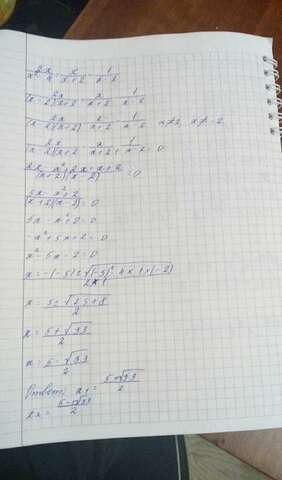 2x/x²-4 = x/x+2 - 1/x-2
2x/(x-2)(x+2) = x/x+2 - 1/x-2
2x/(x-2)(x+2) = x/x+2 - 1/x-2 x≠2, x≠-2
2x/(x-2)(x+2) - x/x+2 + 1/x-2 = 0
2x-x²+2x+x+2/(x+2)(x-2) = 0
5x-x²+2/(x+2)(x-2) = 0
5x-x²+2=0
-x²+5x+2=0
x²-5x-2=0
x=-(-5)±√(-5)²-4×1×(-2)/2×1
x=5±√25+8/2
x=5+√33/2
x=5-√33/2
Ответ: x1=5+√33/2
x2=5-√33/2